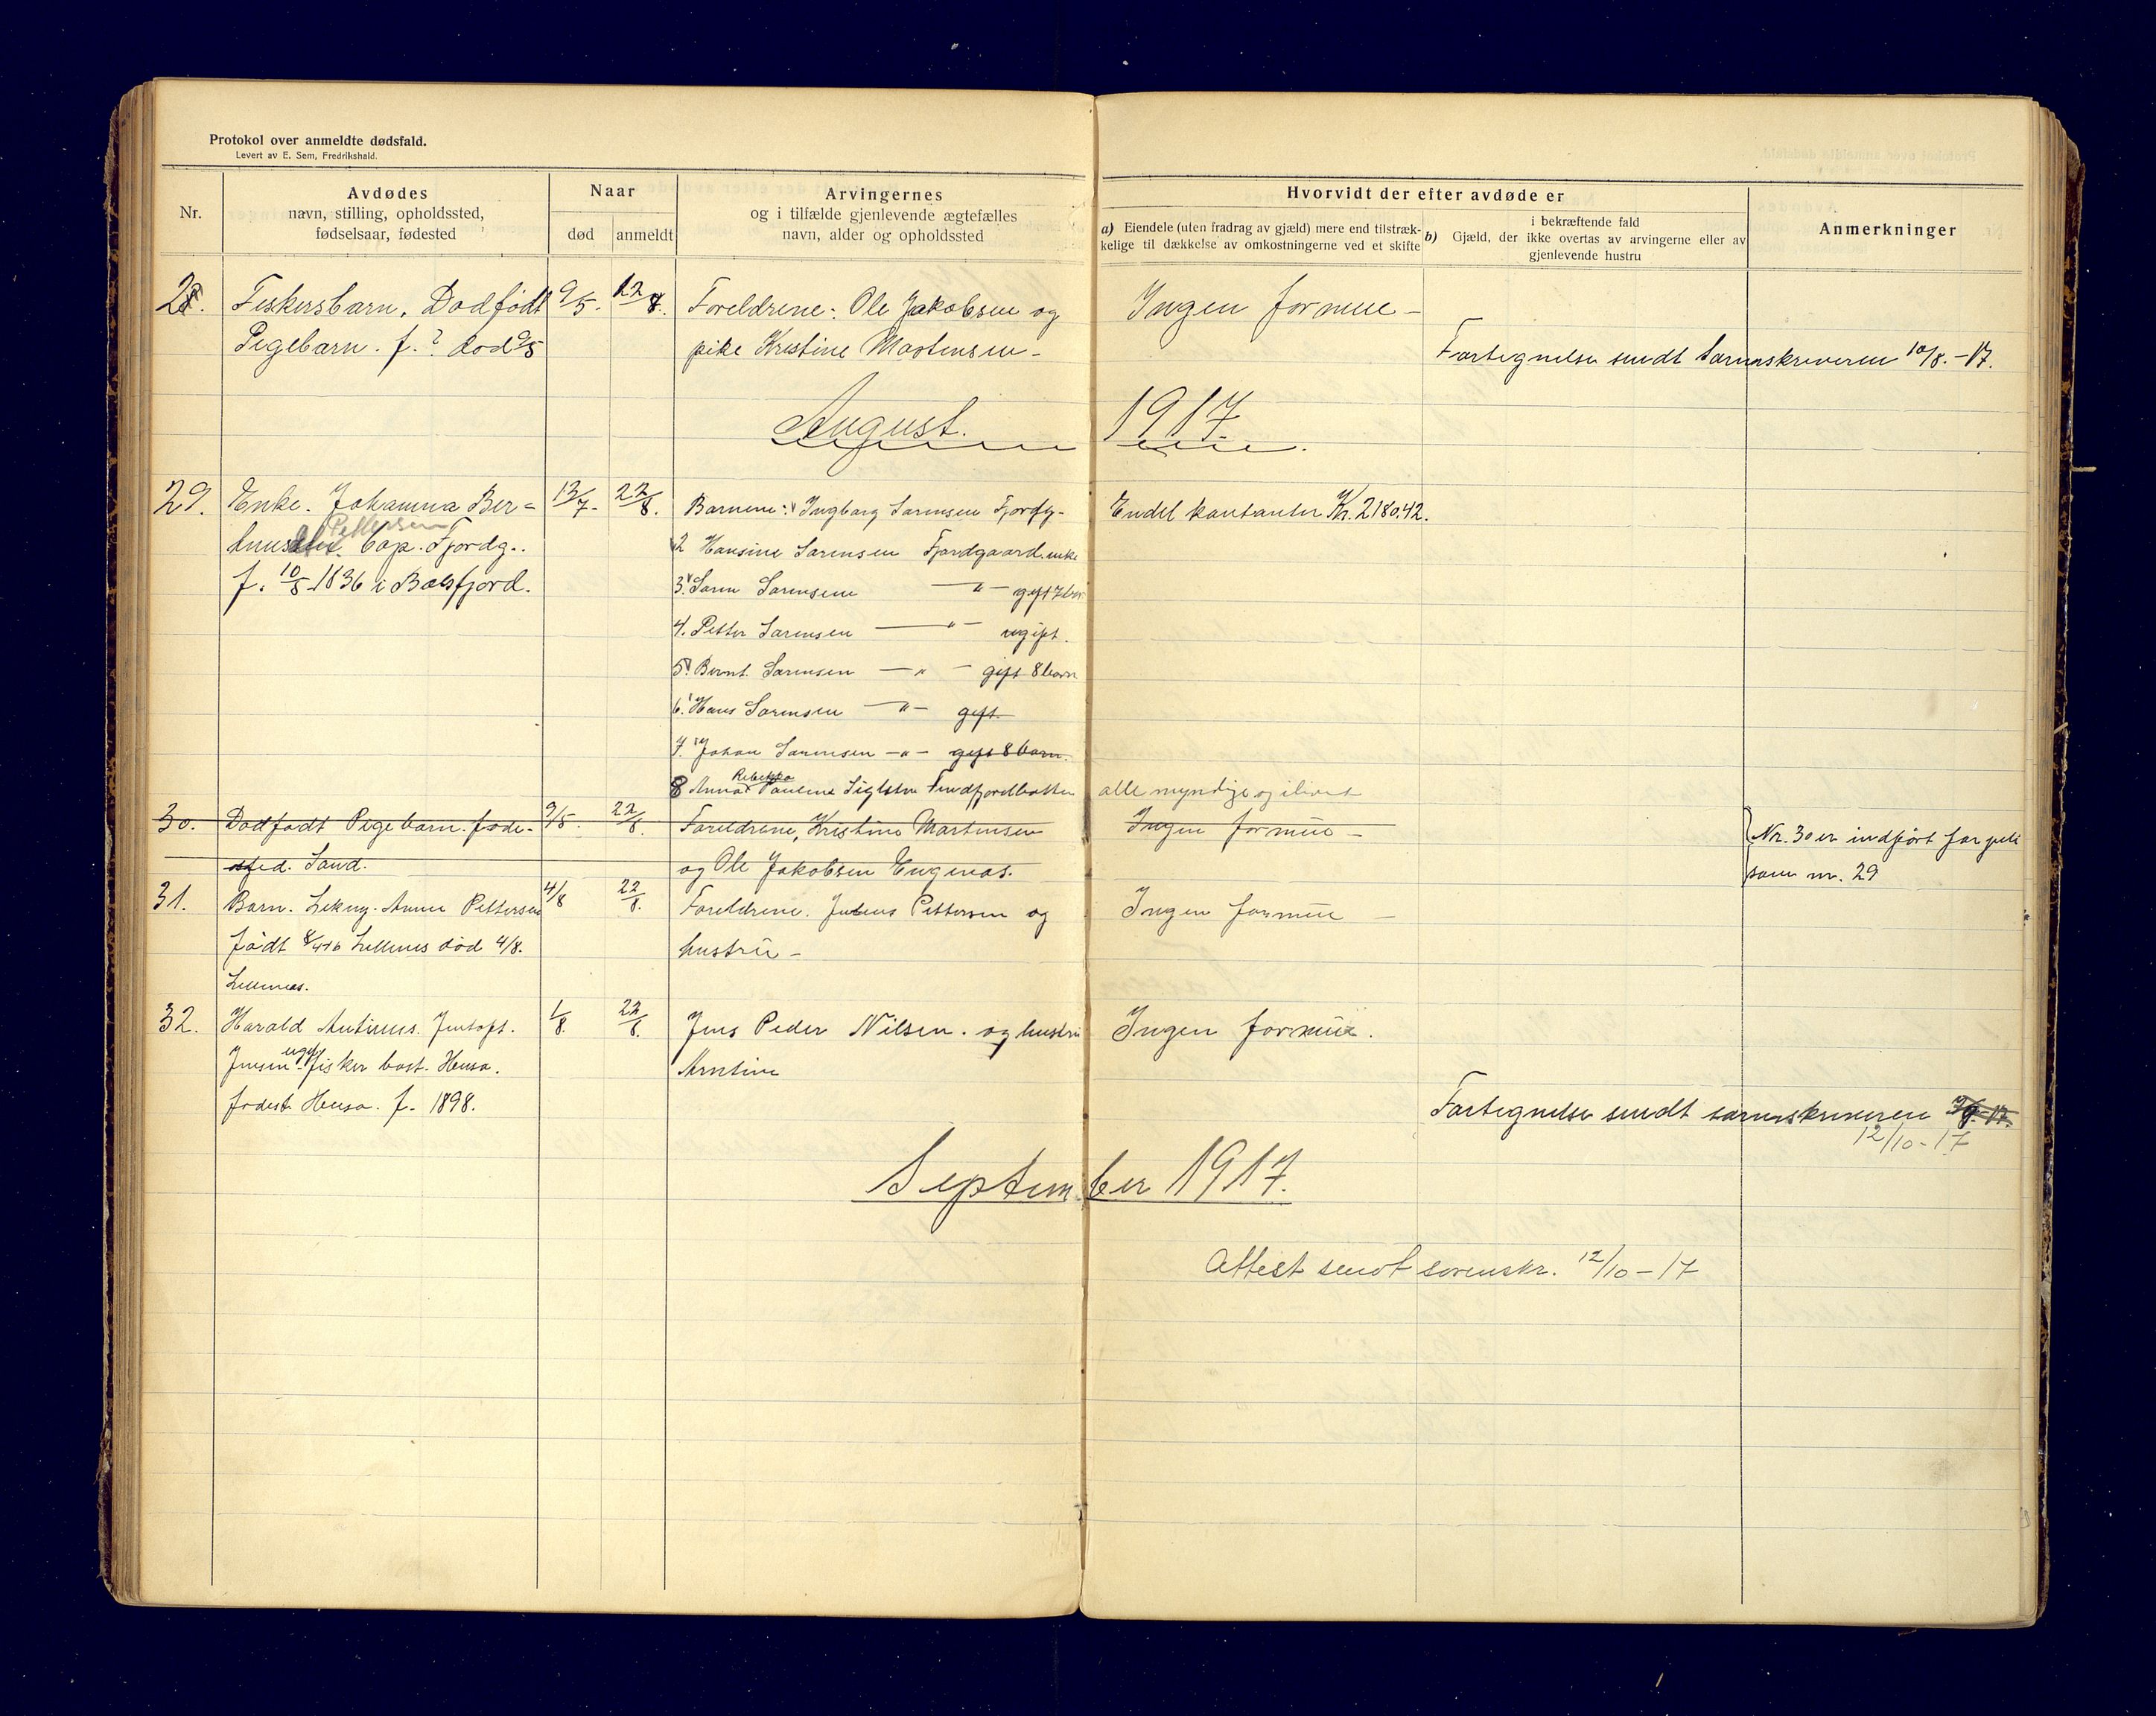 Protokol over anmeldte dødsfald.
Levert av E. Sem, Fredrikshald.
Nr.
Avdødes
navn, stilling, opholdssted,
fødselsaar, fødested
Naar
død
anmeldt
Arvingernes
og i tilfælde gjenlevende ægtefælles
navn, alder og opholdssted
Hvorvidt der efter avdøde er
a) Eiendele (uten fradrag av gjæld) mere end tilstræk-
kelige til dækkelse av omkostningerne ved et skifte
i bekræftende fald
b) Gjæld, der ikke overtas av arvingerne eller av
gjenlevende hustru
Anmerkninger
28. Fiskersbarn. Dødfødt 9/5. 22/8. Foreldrene: Ole Jakobsen og Ingen formue –
Pigebarn. f. ? død 9/5 pike Kristine Martensen –
Fortegnelse sendt Sorenskriveren 10/8. – 17.
August. 1917.
29. Enke. Johanna Ber= 13/7. 22/8. Barnene: Ingborg Sørensen Fjordg. Endel kontanter Kr. 2180.42.
Pettersen
Fjordg..
f. 10/8 1836 i Balsfjord.
2 Hansine Sørensen Fjordgaard. enke
3. Søren Sørensen — " — gift 7 brn
4. Petter Sørensen — " — ugift.
5. Bernt Sørensen — " — gift 8 barn
6. Hans Sørensen — " — gift
7. Johan Sørensen — " — gift 8 barn.
Rebekka
8 Anna Pauline alle myndige og ilivet
30. Dødfødt Pigebarn. føde- 9/5. 22/8. Foreldrene, Kristine Martensen Ingen formue –
sted. Sand. og Ole Jakobsen
Nr. 30 er indført før
som nr. 29
31. Barn. Anne Pettersen 4/8 22/8. Foreldrene. Pettersen og Ingen formue –
født Lillenes død 4/8. hustru –
Lillenes.
32. Harald Antinus. Jentoft. 1/8. 22/8. Jens Peder Nilsen. og hustru Ingen formue.
Jensen ugf fisker bost. Hensø. Arntine
fødest. Hensø. f. 1898.
Fortegnelse sendt sorenskriveren
12/10 – 17
September 1917.
Attest sendt sorenskr. 12/10 – 17